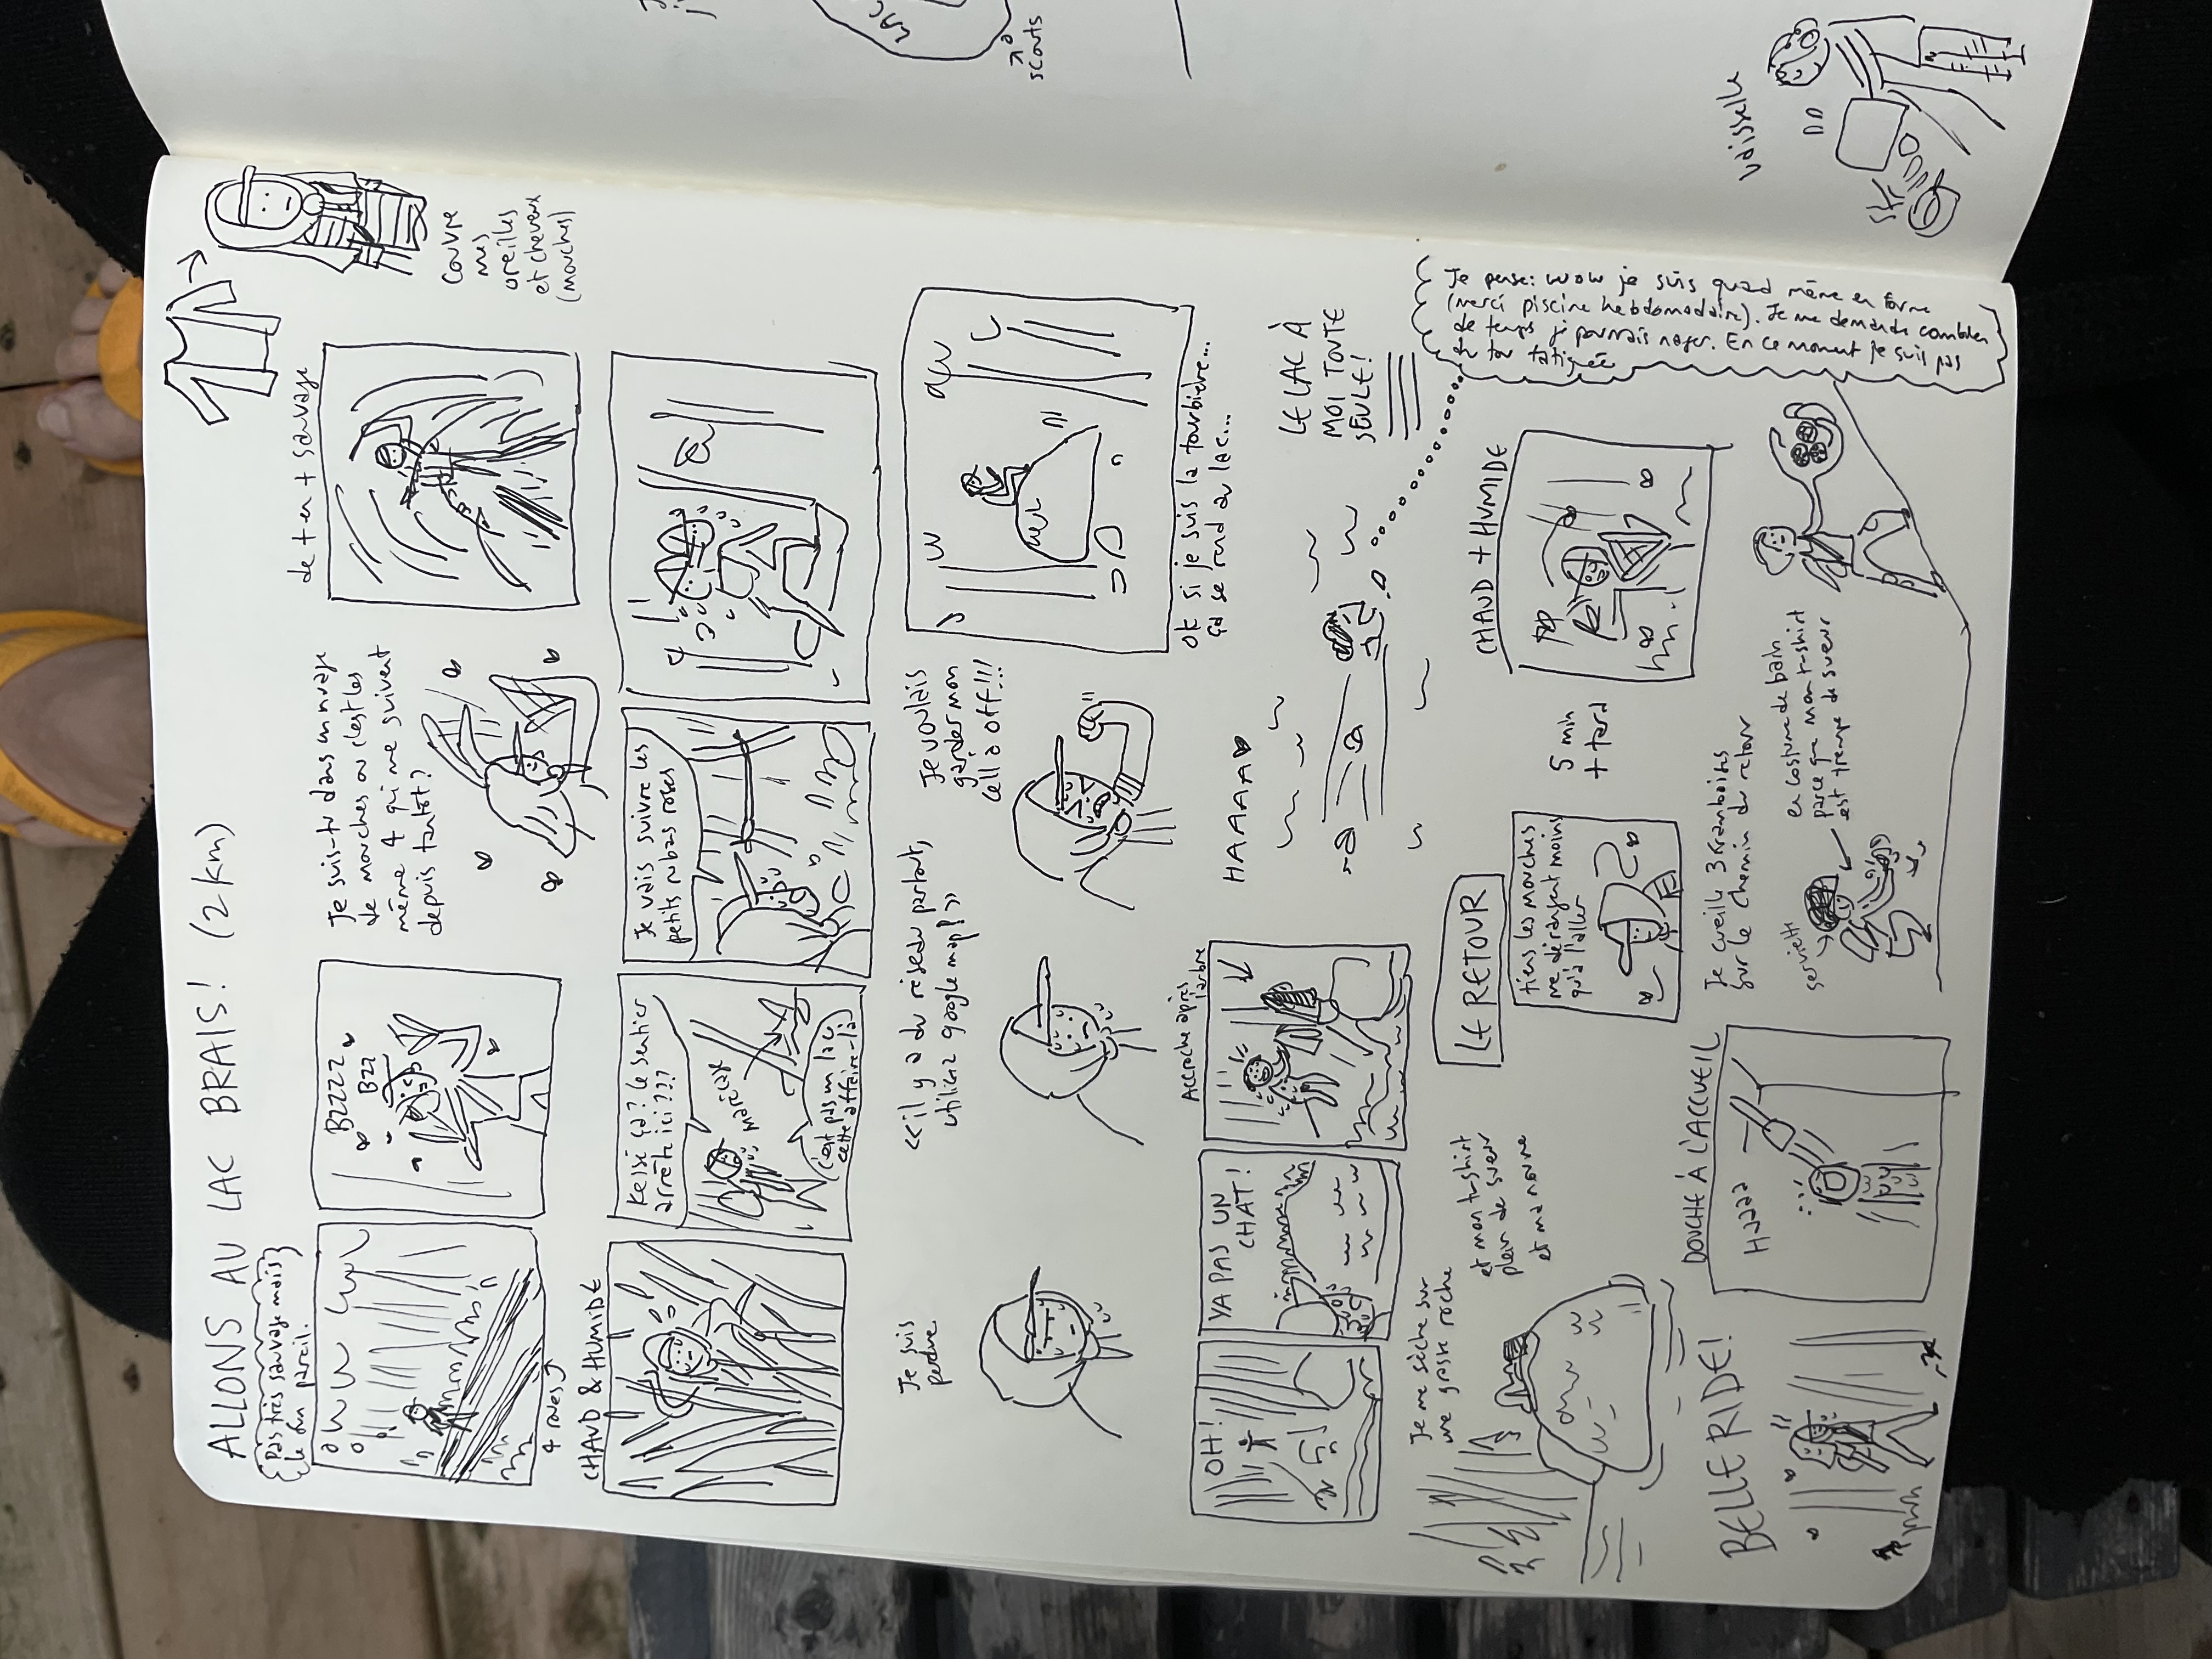 LAC
scouts
ALLONS AU LAC BRAIS! (2 km)
Pas très sauvage mais
le fun pareil.
4 roues
BZZZZ
BZZ
Je suis-tu dans un nuage
de mouches ou c'est les
même 4 qui me suivent
depuis tantôt?
de + en + sauvage
Couvre
mes
oreilles
et cheveux
(mouches)
CHAUD & HUMIDE
Kessé ça? le sentier
arrête ici???
marécage
c'est pas un lac
cette affaire-là
Je vais suivre les
petits rubans roses
Je suis
perdue
<<il y a du réseau partout,
utilisez google map!>>
Je voulais
garder mon
cell à off!!!
ok si je suis la tourbière...
ça se rend au lac...
OH!
YA PAS UN
CHAT!
Accroche après
l'arbre
HAAAAA
LE LAC À
MOI TOUTE
SEULE!
Je pense: wow je suis quand même en forme
(merci piscine hebdomadaire). Je me demande combien
de temps je pourrais nager. En ce moment je suis pas
du tout fatiguée
Je me sèche sur
une grosse roche
et mon t-shirt
plein de sueur
et ma
LE RETOUR
tiens les mouches
me dérangent moins
qu'à l'aller
5 min
+ tard
CHAUD + HUMIDE
BELLE RIDE!
DOUCHE À L'ACCUEIL
Haaaa
Je cueille 3 framboises
sur le chemin du retour
serviette
en costume de bain
parce que mon t-shirt
est trempe de sueur
vaisselle